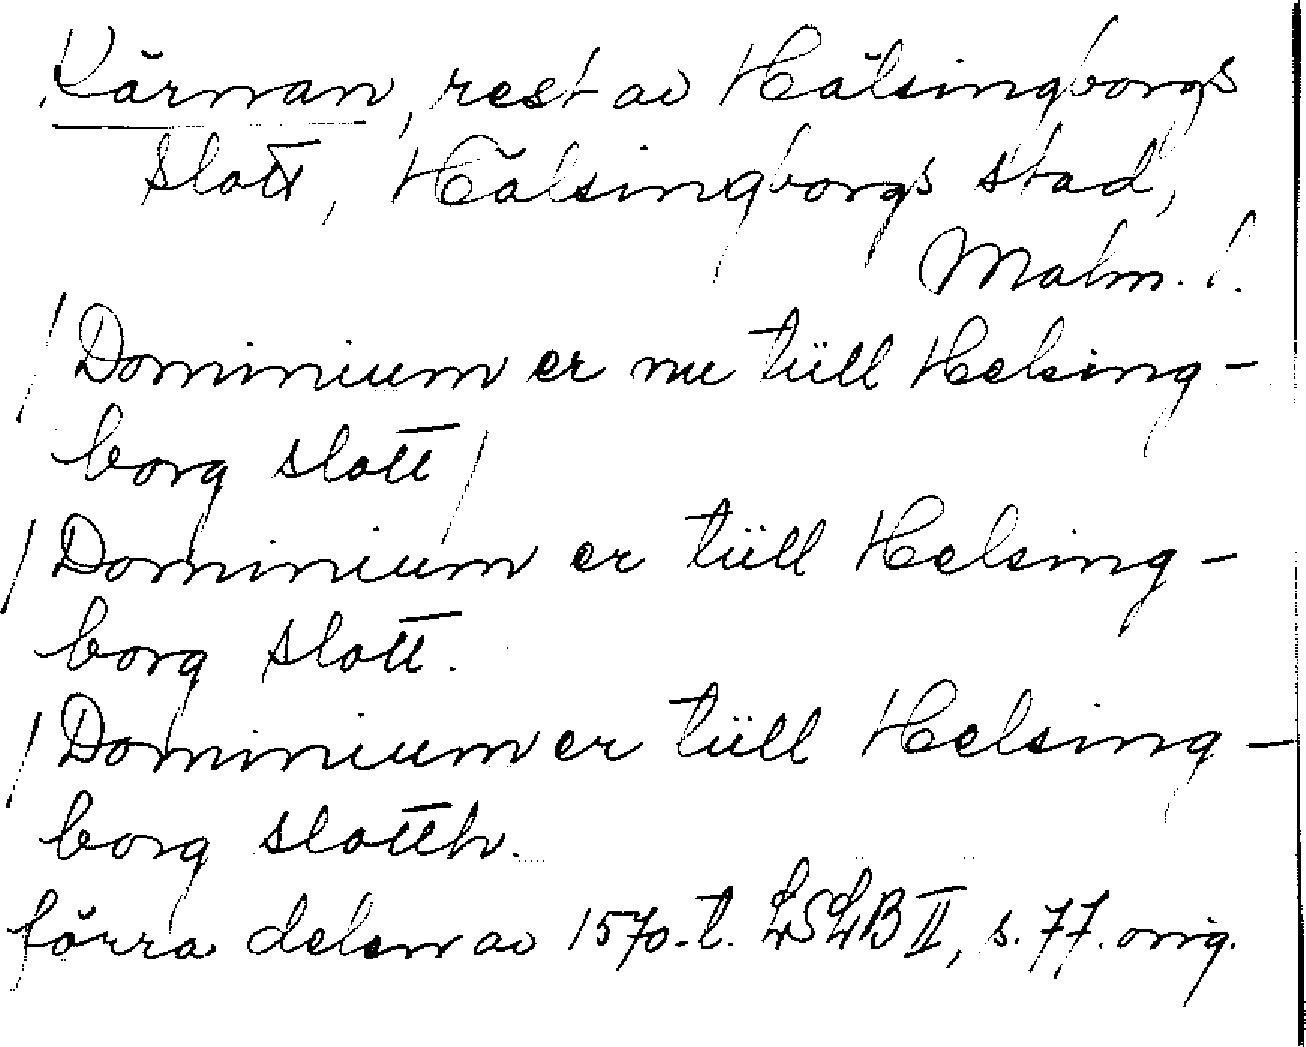 Kärnan, rest av Hälsingborgs
slott, Hälsingborgs stad,
Malm. l.
/Dominium er nu tüll Helsing-
borg slott/
/Dominium er tüll Helsing-
borg slott.
/Dominium er tüll Helsing-
borg slotth.
förra delen av 1570-t. LSLB II, s. 77. orig.